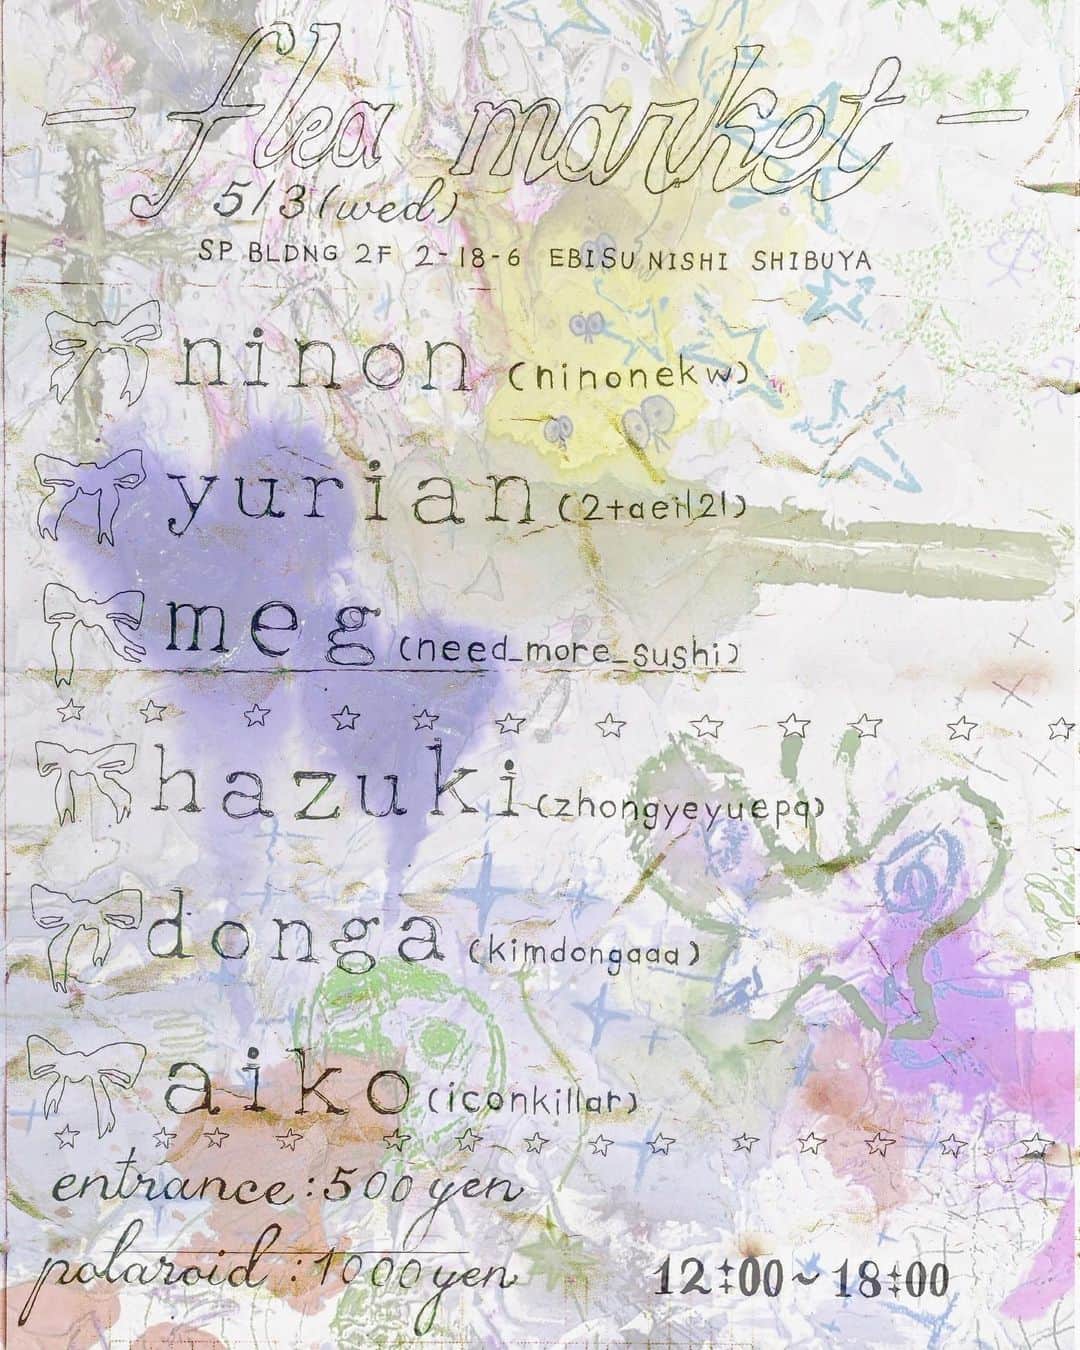 - flea market -
5/3(wed)
SP BLDNG 2F 2-18-6 EBISU NISHI SHIBUYA
ninon (ninonekw)
yurian (2taeil21)
meg (need_more_sushi)
hazuki (zhongyeyuepq)
donga (kimdongaaa)
aiko (iconkillar)
entrance:500yen
polaroid:1000yen
12:00~18:00